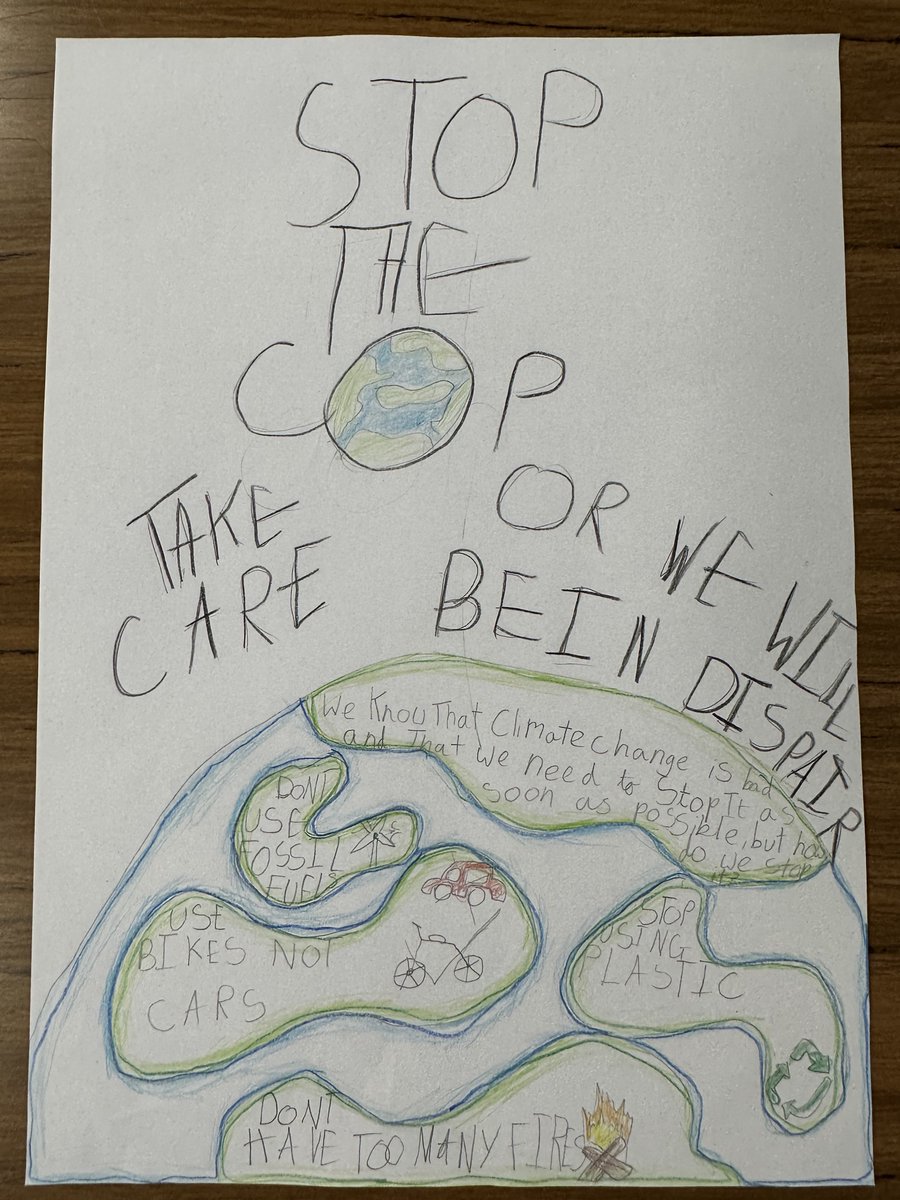 STOP
THE
COP
TAKE
CARE
OR WE WILL
BE IN DISPAIR
We Know That Climate change is bad
and That we need to Stop It as
soon as possible, but how
do we stop
it?
DONT
USE
FOSSIL
FUELS
USE
BIKES NOT
CARS
STOP
USING
PLASTIC
DONT
HAVE TOO MANY FIRES